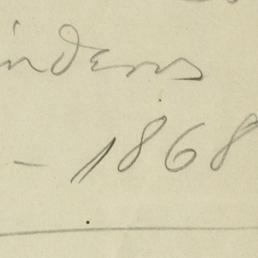 inders
– 1868